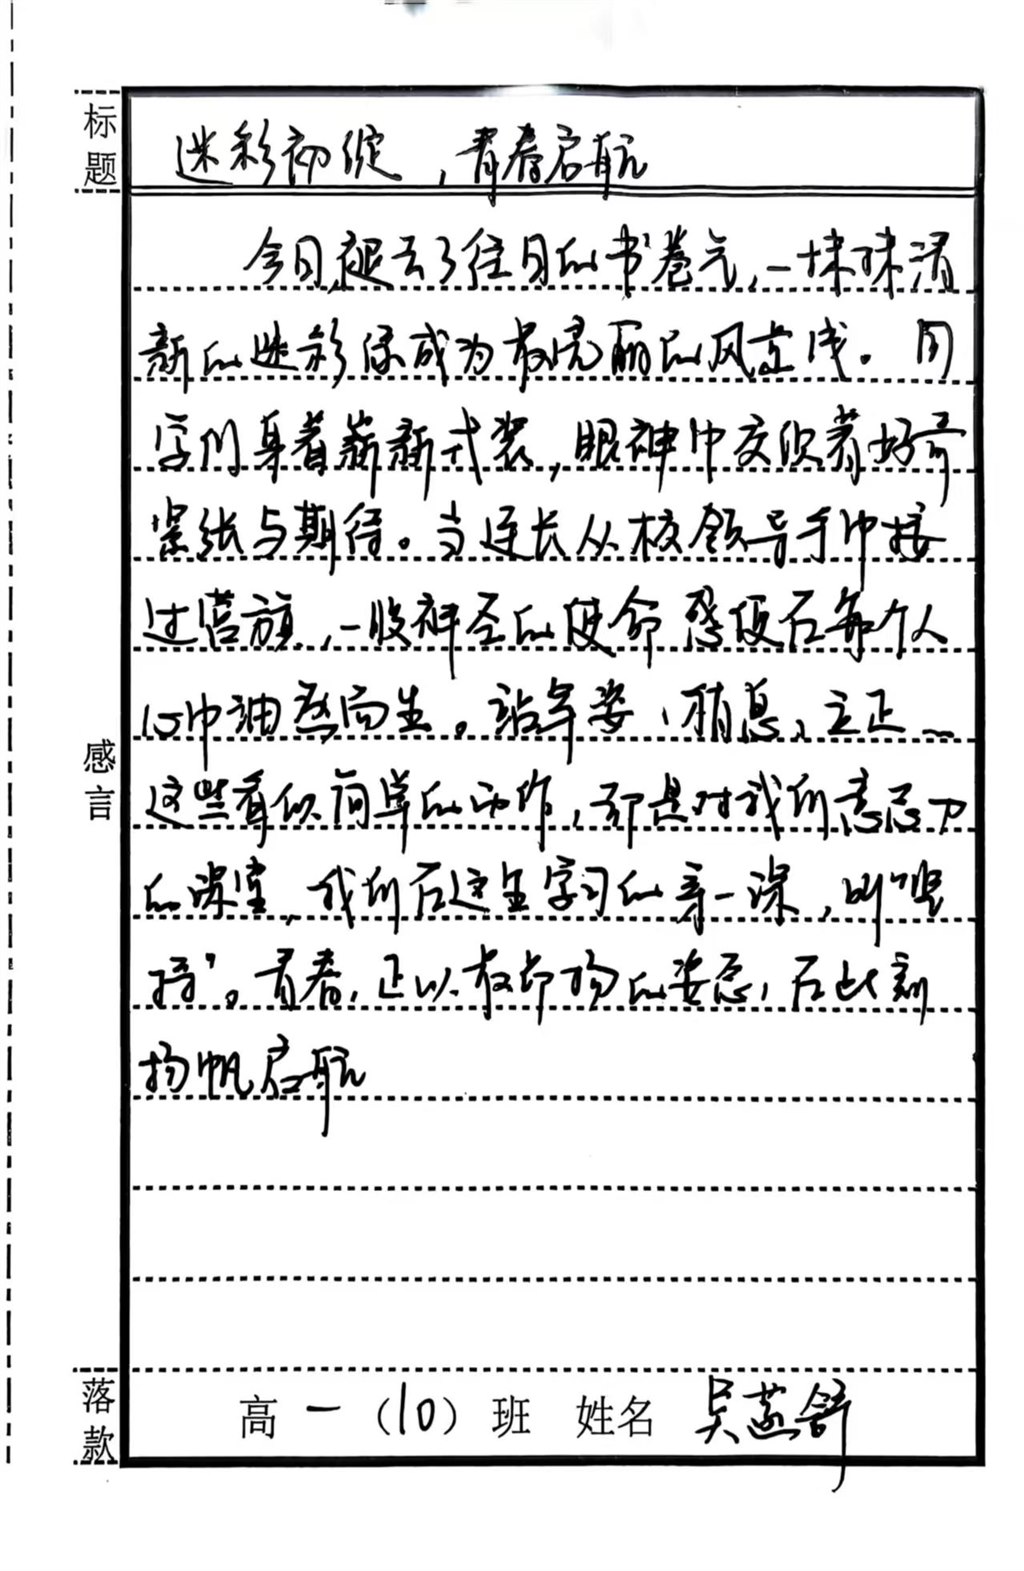 标题
迷彩初绽，青春启航
今日，褪去了往日的书卷气，一抹抹清
新的迷彩绿成为最亮丽的风景线。同
学们身着崭新式装，眼神中交织着好奇
紧张与期待。当连长从校领导手中接
过营旗，一股神圣的使命感便在每个人
心中油然而生。站军姿、稍息、立正……
这些看似简单的动作，却是对我们意志力
的课堂，我们在这里学习的第一课，叫“坚
持”。青春，正以最昂扬的姿态，在此刻
扬帆启航
感言
落款
高一（10）班 姓名 吴 舒